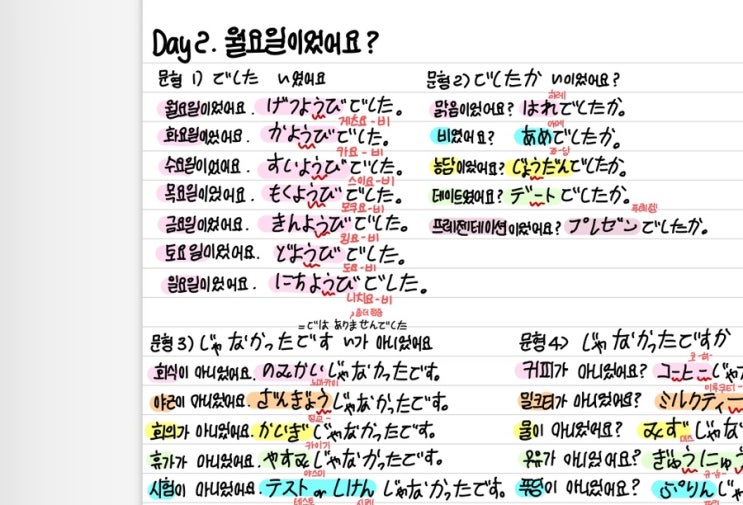 Day 2. 월요일이었어요?
문형 1) でした 이었어요
월요일이었어요. げつようびでした。
게츠요-비
화요일이었어요. かようびでした。
카요-비
수요일이었어요. すいようびでした。
스이요-비
목요일이었어요. もくようびでした。
모쿠요-비
금요일이었어요. きんようびでした。
킹요-비
토요일이었어요. どようびでした。
도요-비
일요일이었어요. にちようびでした。
니치요-비
문형 2) でしたか 이이었어요?
하레
맑음이었어요? はれでしたか。
아메
비였어요? あめでしたか。
죠-당
농담이었어요? じょうだんでしたか。
데이트였어요? デートでしたか。
프레젱
프레젠테이션이었어요? プレゼンでしたか。
좀더 정중
=ではありませんでした
문형 3) じゃなかったです 이/가 아니었어요
회식이 아니었어요. のみかいじゃなかったです。
노미카이
야근이 아니었어요. ざんぎょうじゃなかったです。
장교-
회의가 아니었어요. かいぎじゃなかったです。
카이기
휴가가 아니었어요. やすみじゃなかったです。
야스미
시험이 아니었어요. テスト or しけんじゃなかったです。
테스토
문형 4) じゃなかったですか
코-히-
커피가 아니었어요? コーヒーじゃな
미루쿠티-
밀크티가 아니었어요? ミルクティー
물이 아니었어요? みずじゃな
미즈
우유가 아니었어요? ぎゅうにゅう
규-뉴-
푸딩이 아니었어요? ぷりんじゃ